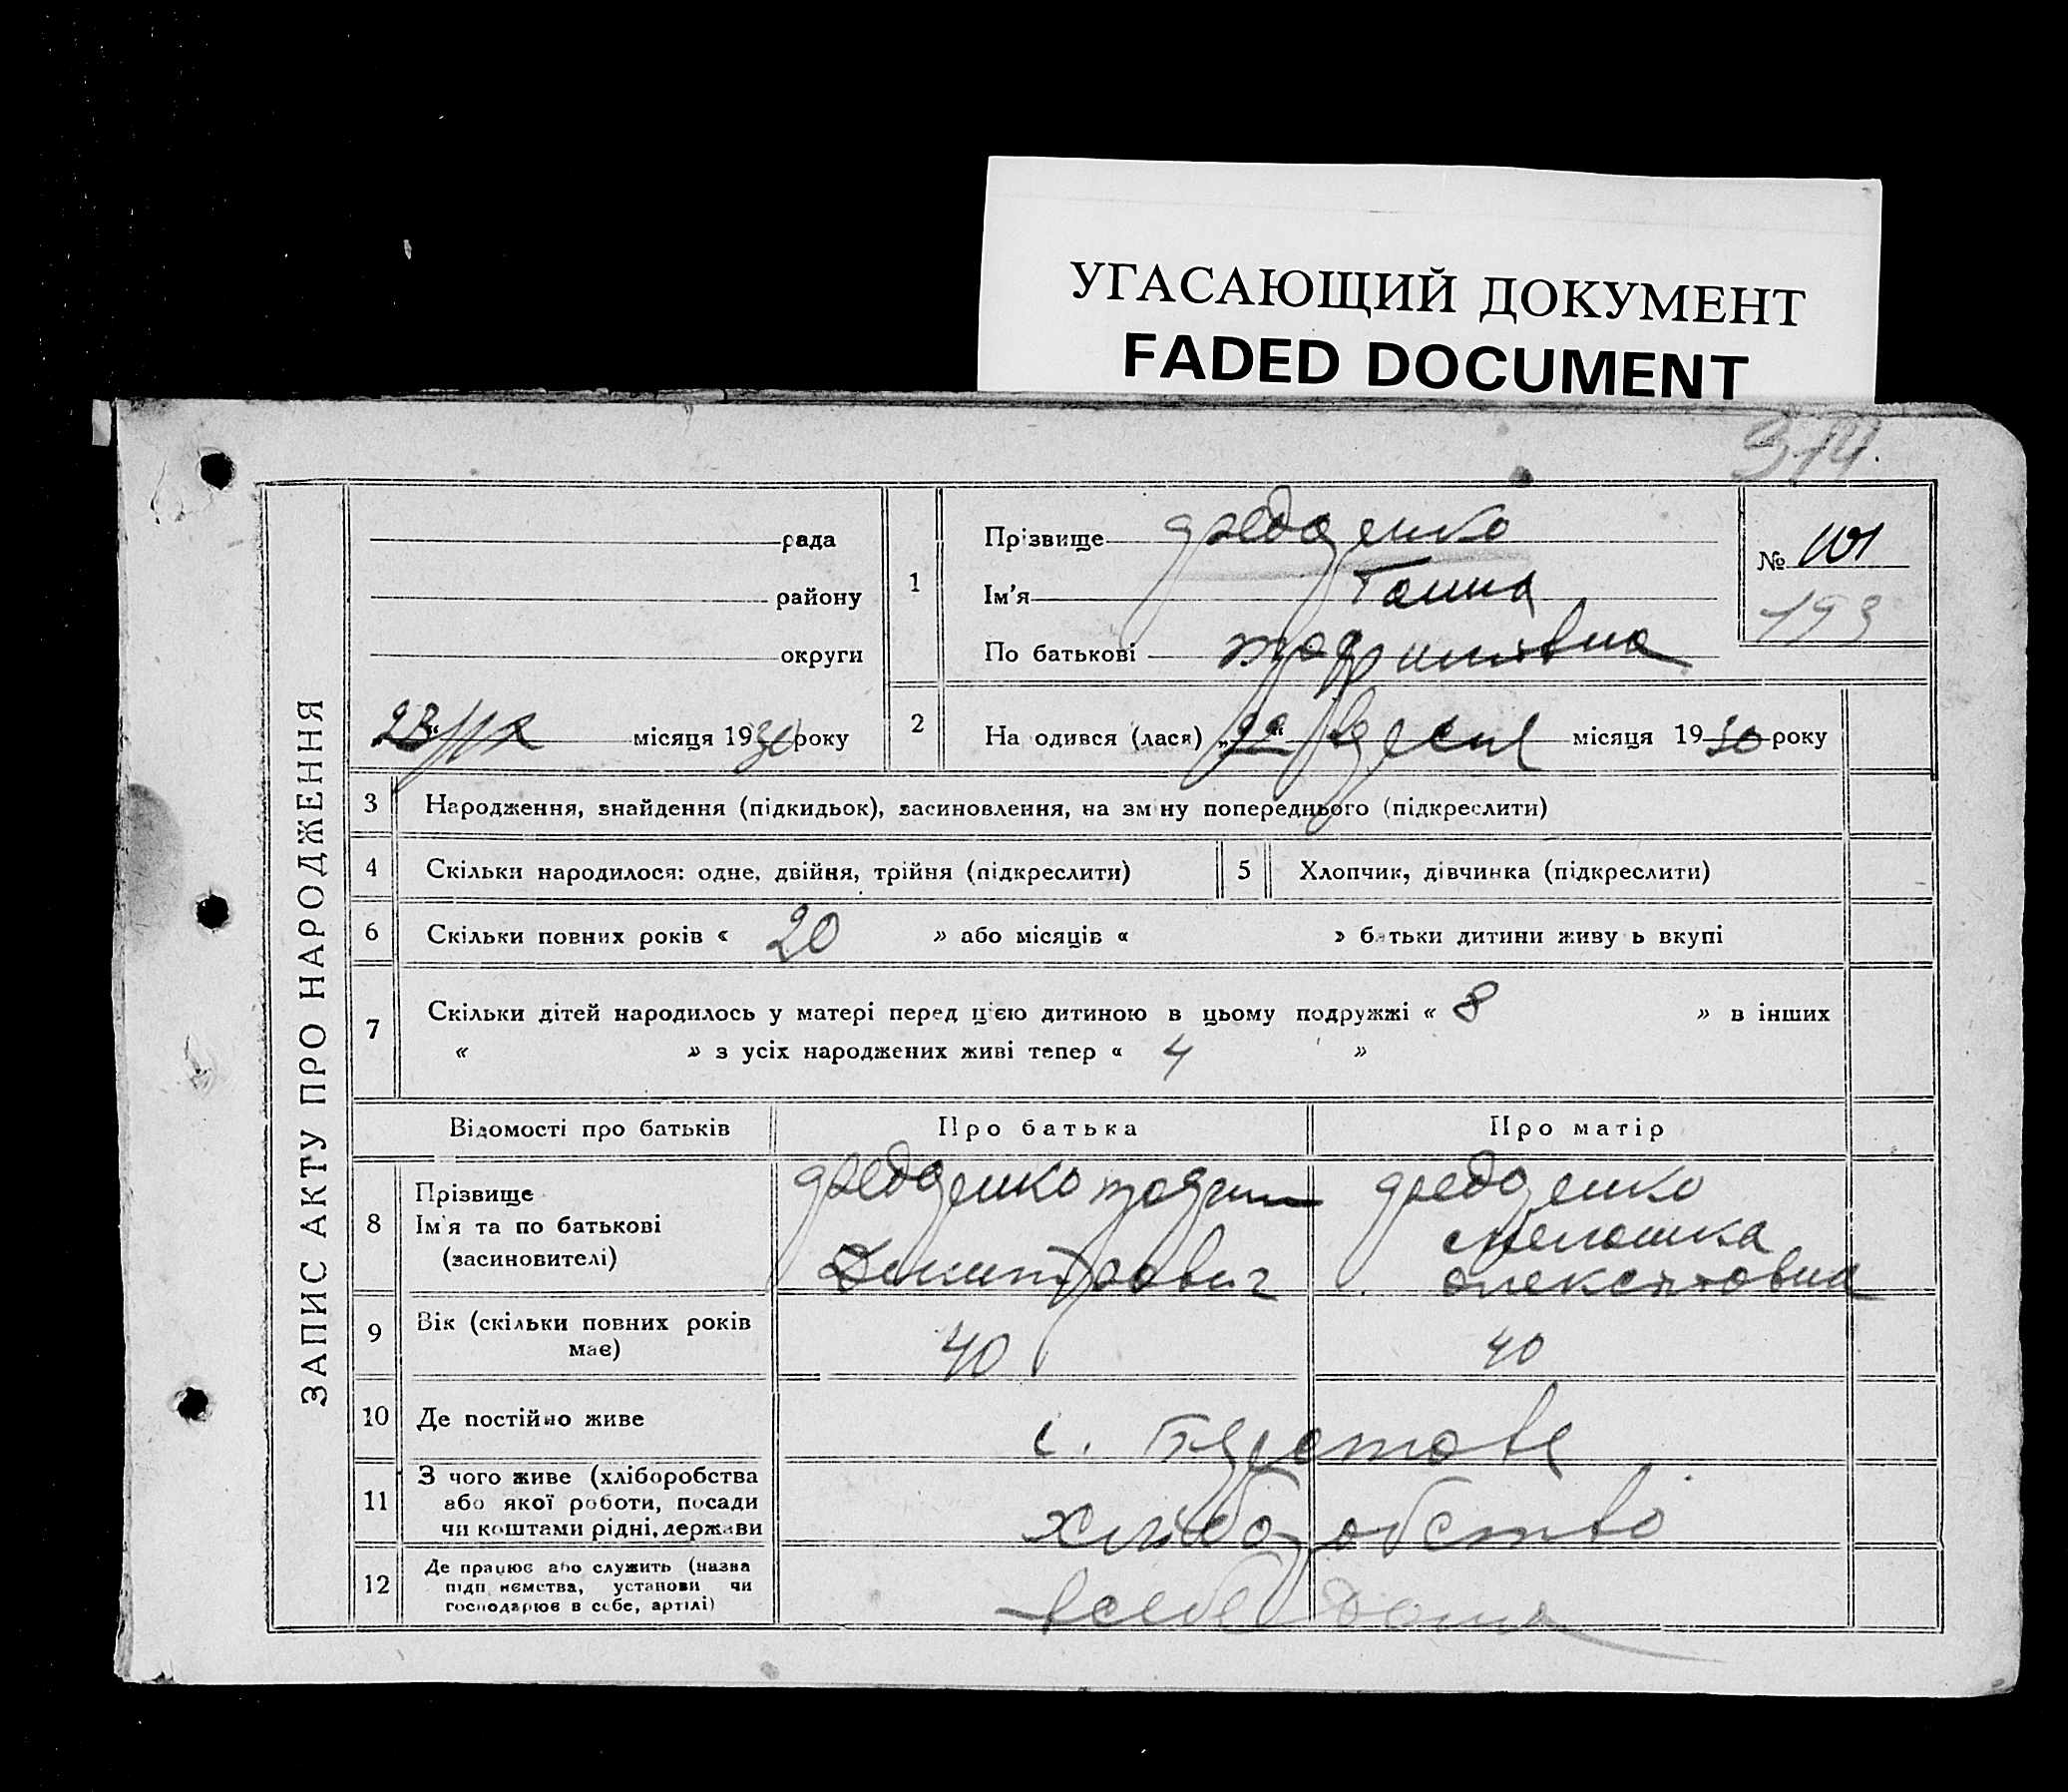 УГАСАЮЩИЙ ДОКУМЕНТ
FADED DOCUMENT
374.
ЗАПИС АКТУ ПРО НАРОДЖЕННЯ
рада
району
округи
23/IX місяця 1930 року
1
Прізвище
Ім'я Ганна
По батькові
№ 101
193
2
На одився (лася) „22“ месяця місяця 1930 року
3
Народження, знайдення (підкидьок), засиновлення, на зміну попереднього (підкреслити)
4
Скільки народилося: одне, двійня, трійня (підкреслити)
5
Хлопчик, дівчинка (підкреслити)
6
Скільки повних років « 20 » або місяців « » батьки дитини живу ь вкупі
7
Скільки дітей народилось у матері перед цією дитиною в цьому подружжі « 8 » в інших
« » з усіх народжених живі тепер « 4 »
Відомості про батьків
Про батька
Про матір
8
Прізвище
Ім'я та по батькові
(засиновителі)
Дмитрович
Мелашка
9
Вік (скільки повних років
має)
40
40
10
Де постійно живе
с.
11
З чого живе (хліборобства
або якої роботи, посади
чи коштами рідні, держави
хліборобство
12
Де працює або служить (назва
підп иємства, установи чи
господарює в себе, артілі)
всебе дома